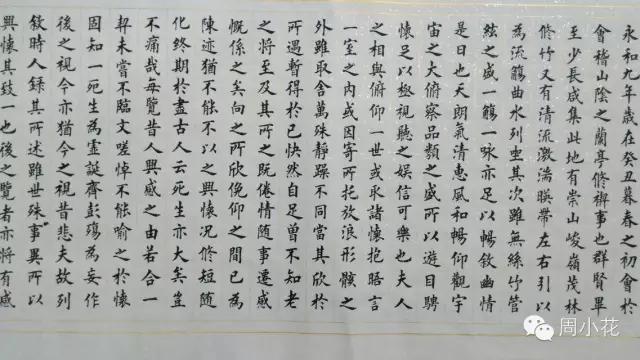 永和九年歲在癸丑暮春之初會於
會稽山陰之蘭亭修禊事也群賢畢
至少長咸集此地有崇山峻嶺茂林
修竹又有清流激湍暎帶左右引以
為流觴曲水列坐其次雖無絲竹管
絃之盛一觴一咏亦足以暢敘幽情
是日也天朗氣清惠風和暢仰觀宇
宙之大俯察品類之盛所以遊目騁
懷足以極視聽之娛信可樂也夫人
之相與俯仰一世或取諸懷抱晤言
一室之內或因寄所托放浪形骸之
外雖取舍萬殊靜躁不同當其欣於
所遇暫得於己快然自足曾不知老
之將至及其所之既倦情隨事遷感
慨係之矣向之所欣俛仰之間已為
陳迹猶不能不以之興懷況修短隨
化終期於盡古人云死生亦大矣豈
不痛哉每覽昔人興感之由若合一
契未嘗不臨文嗟悼不能喻之於懷
固知一死生為虛誕齊彭殤為妄作
後之視今亦猶今之視昔悲夫故列
敘時人錄其所述雖世殊事異所以
興懷其致一也後之覽者亦將有感
周小花